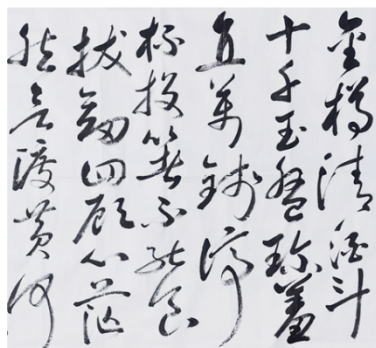 金樽清酒斗
十千玉盤珍羞
直萬錢停
杯投箸不能食
拔劍四顧心茫
然欲渡黃河